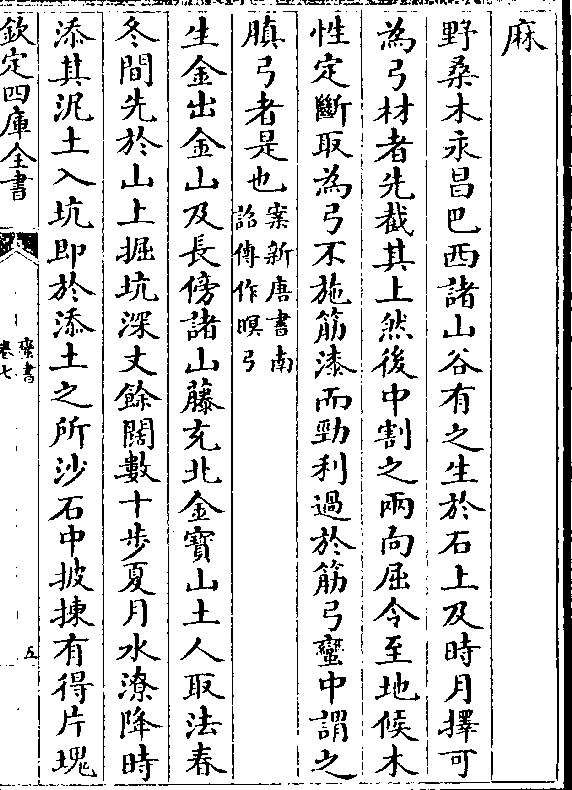 麻
野桑木永昌巴西諸山谷有之生於石上及時月擇可
為弓材者先截其上然後中割之兩向屈令至地候木
性定斷取為弓不施筋漆而勁利過於筋弓蠻中謂之
䐜弓者是也案新唐書南
詔傳作瞑弓
生金出金山及長傍諸山藤充北金寶山土人取法春
冬間先於山上掘坑深丈餘闊數十步夏月水潦降時
添其泥土入坑即於添土之所沙石中披揀有得片塊
欽定四庫全書
蠻書
卷七
五